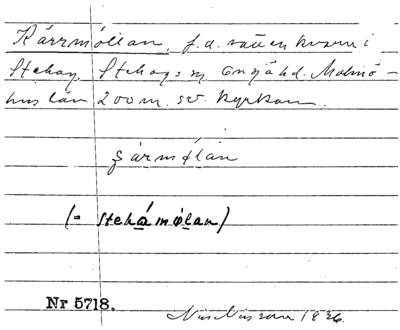 Kärrmöllan, f.d. vattenkvarn i
Stehag, Stehags sn, Onsjö hd. Malmö-
hus län 200 m. sv. kyrkan.
çármølan
(= stehámø̱lan)
Nr 5718.
Nils Nilsson 1936.